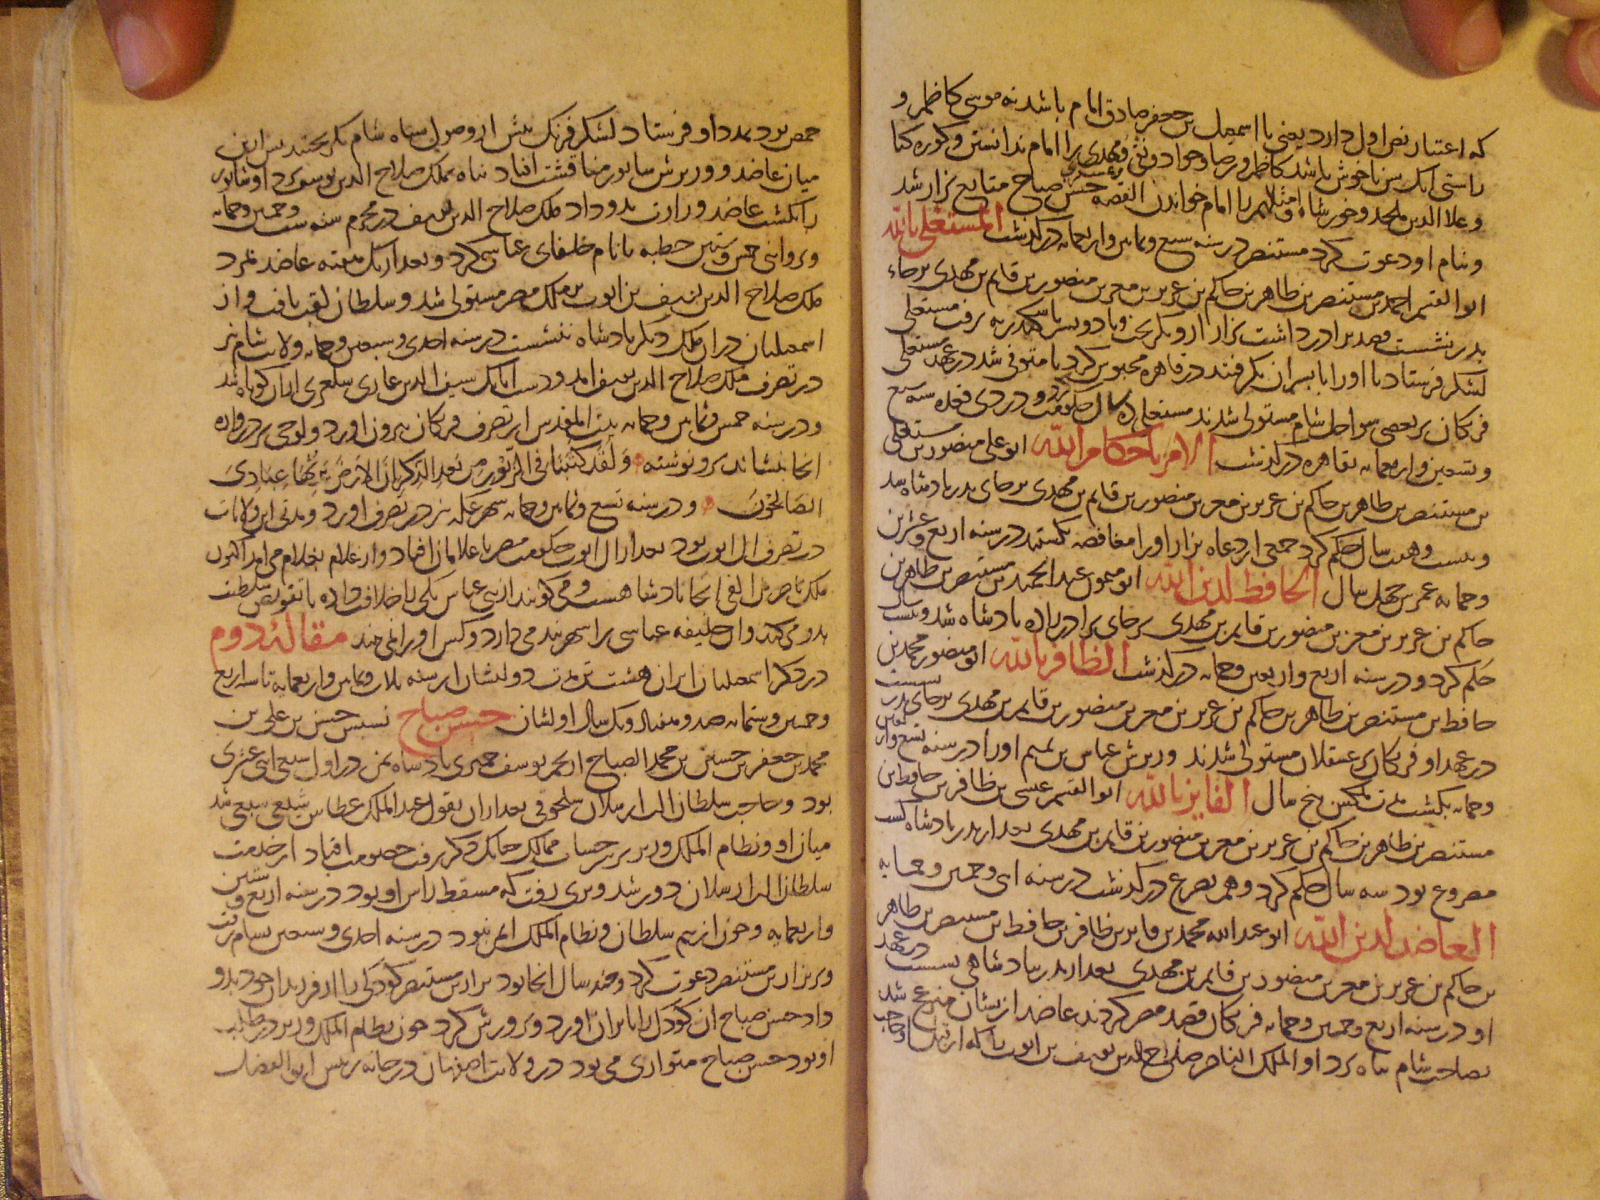 که اعتبار نص اول دارد یعنی با اسمعیل بن جعفر صادق امام باشد نه موسی کاظم و
راستی آنک سن ناخوش باشد کاظم و رضا و جواد و نقی و مهدی را امام ندانستن و کوره کیا
و علاالدین ملحد و خورشاه و امثالهم را امام خواندن القصه حسن صباح متابع نزار شد
و بنام او دعوت کرد مستنصر در سنه سبع و ثمانین و اربعمایه درگذشت المستعلی بالله
ابوالقسم احمد بن مستنصر بن ظاهر بن حاکم بن عزیز بن معز بن منصور بن قایم بن مهدی بر جاء
پدر نشست و قصد برادر داشت نزار ازو بگریخت و با دو پسر باسکندریه برفت مستعلی
لشکر فرستاد تا او را با پسران بگرفتند در قاهره محبوس کرد تا متوفی شد در عهد مستعلی
فرنگان بر بعضی سواحل شام مستولی شدند مستعلی سال حکومت کرد و در ذی قعده سنه سبع
و تسعین و اربعمایه بقاهره درگذشت الآمر باحکام الله ابو علی منصور بن مستعلی
بن مستنصر بن ظاهر بن حاکم بن عزیز بن معز بن منصور بن قایم بن مهدی بر جای پدر پادشاه شد
و بیست و هفت سال حکم کرد جمعی از دعاه نزار او را مغافصه بکشتند در سنه اربع و عشرین
و خمسمایه عمرش چهل سال الحافظ لدین الله ابو میمون عبدالحمید بن مستنصر بن ظاهر بن
حاکم بن عزیز بن معز بن منصور بن قایم بن مهدی بر جای برادرزاده پادشاه شد و بیست سال
حکم کرد و در سنه اربع و اربعین و خمسمایه درگذشت الظافر بالله ابو منصور محمد بن
حافظ بن مستنصر بن ظاهر بن حاکم بن عزیز بن معز بن منصور بن قایم بن مهدی بر جای پدر نشست
در عهد او فرنگان بر عسقلان مستولی شدند وزیرش عباس بن تمیم او را در سنه تسع و اربعین
و خمسمایه بکشت مدت ملکش پنج سال الفایز بالله ابوالقسم عیسی بن ظافر بن حافظ بن
مستنصر بن ظاهر بن حاکم بن عزیز بن معز بن منصور بن قایم بن مهدی بعد از پدر پادشاه گشت
مصروع بود سه سال حکم کرد و هم بصرع درگذشت در سنه اثنی و خمسین و خمسمایه
العاضد لدین الله ابو عبدالله محمد بن فایز بن ظافر بن حافظ بن مستنصر بن ظاهر
بن حاکم بن عزیز بن معز بن منصور بن قایم بن مهدی بعد از پدر بپادشاهی نشست در عهد
او در سنه اربع و خمسین و خمسمایه فرنگان قصد مصر کردند عاضد ازیشان منزعج شد
بصاحب شام پناه برد او الملک الناصر صلاح الدین یوسف بن ایوب را که از
حمص بود بمدد او فرستاد لشکر فرنگ پیش از وصول سپاه شام بگریختند پس ازین
میان عاضد و وزیرش شاپور مناقشت افتاد پناه بملک صلاح الدین یوسف برد او شاپور
را بکشت عاضد وزارت بدو داد ملک صلاح الدین یوسف در محرم سنه ست و خمسین و خمسمایه
و بروایتی خمس و ستین خطبه با نام خلفای عباسی کرد و بعد از یک هفته عاضد بمرد
ملک صلاح الدین یوسف بن ایوب بر ملک مصر مستولی شد و سلطان لقب یافت و از
اسمعیلیان در آن ملک دیگر پادشاه ننشست در سنه احدی و سبعین و خمسمایه ولایت شام نیز
در تصرف ملک صلاح الدین یوسف آمد و دست اتابک سیف الدین غازی سلغری از آن کوتاه شد
و در سنه خمس و ثمانین و خمسمایه بیت المقدس از تصرف فرنگان بیرون آورد و لوحی بر دروازه
آنجا نشاند برو نوشته وَلَقَد کَتَبنا فی الزَّبور مِن بَعد الذِّکر اَنَّ الاَرضَ یَرِثُها عِبادِیَ
الصالحون و در سنه تسع و ثمانین و خمسمایه شهر عکه نیز در تصرف آورد و مدتی این ولایات
در تصرف آل ایوب بود بعد از آل ایوب حکومت مصر با غلامان افتاد و از غلام بغلام می آمد اکنون
ملک ناصر آنجا پادشاهست و می گویند از بنی عباس یکی را خلافت داده تا تفویض سلطنت
بدو می کند و آن خلیفه عباسی را شهربند می دارد و کس او را نمی بیند مقالت دوم
در ذکر اسمعیلیان ایران هشت تن مدت دولتشان از سنه ثلاث و ثمانین و اربعمایه تا سنه اربع
و خمسین و ستمایه صد و هفتاد و یک سال اولشان حسن صباح نسبش حسن بن علی بن
محمد بن جعفر بن حسین بن محمد الصباح الحمیری یوسف حمیری پادشاه یمن در اول شیعی اثنی عشری
بود و حاجب سلطان الب ارسلان سلجوقی بعد از آن بقول عبدالملک عطاش شیعی سبعی شد
میان او و نظام الملک وزیر بر سر حساب ممالک چنانک ذکر رفت خصومت افتاد از خدمت
سلطان الب ارسلان دور شد و بری رفت که مسقط راس او بود در سنه اربع و ستین
و اربعمایه و چون از بیم سلطان و نظام الملک ایمن نبود در سنه احدی و سبعین بشام رفت
و بر نزار بن مستنصر دعوت کرد و چند سال آنجا بود نزار بن مستنصر کودکی را از فرزندان خود بدو
داد حسن صباح آن کودک را بایران آورد و پرورش کرد چون نظام الملک وزیر در طلب
او بود حسن صباح متواری می بود در ولایت اصفهان در خانه رئیس ابوالفضل